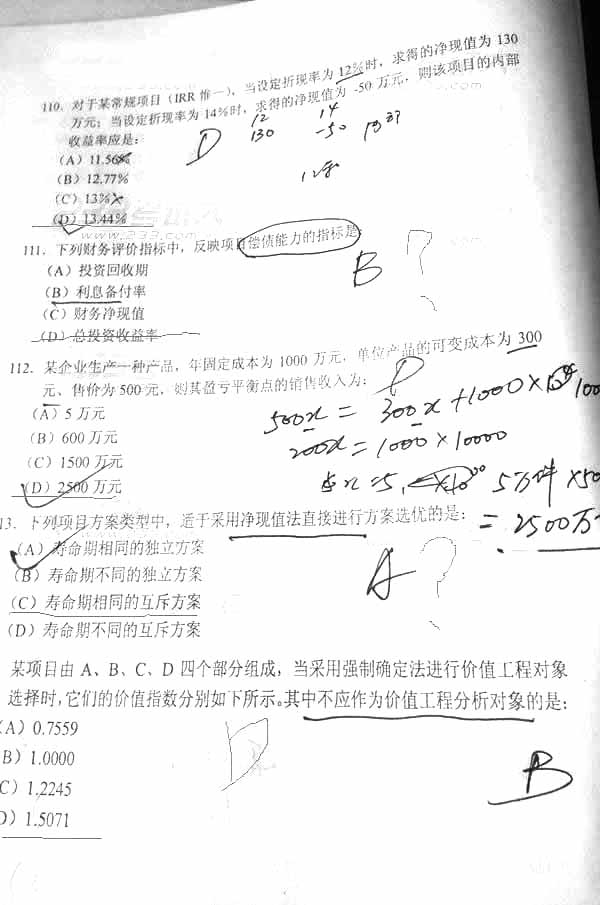 110. 对于某常规项目（IRR 惟一），当设定折现率为 12%时，求得的净现值为 130
万元；当设定折现率为 14%时，求得的净现值为 -50 万元，则该项目的内部
收益率应是：
12 14
D 130 -50
(A) 11.56%
(B) 12.77%
(C) 13%
(D) 13.44%
www.233.com
111. 下列财务评价指标中，反映项目偿债能力的指标是：
B
(A) 投资回收期
(B) 利息备付率
(C) 财务净现值
(D) 总投资收益率
112. 某企业生产一种产品，年固定成本为 1000 万元，单位产品的可变成本为 300
元、售价为 500 元，则其盈亏平衡点的销售收入为：
(A) 5 万元
500x = 300x + 1000×
(B) 600 万元
200x = 1000 × 10000
(C) 1500 万元
(D) 2500 万元
x=5 5万件 ×50
13. 下列项目方案类型中，适于采用净现值法直接进行方案选优的是：
= 2500万
(A) 寿命期相同的独立方案
(B) 寿命期不同的独立方案
A
(C) 寿命期相同的互斥方案
(D) 寿命期不同的互斥方案
某项目由 A、B、C、D 四个部分组成，当采用强制确定法进行价值工程对象
选择时，它们的价值指数分别如下所示。其中不应作为价值工程分析对象的是：
(A) 0.7559
B) 1.0000
B
C) 1.2245
D) 1.5071